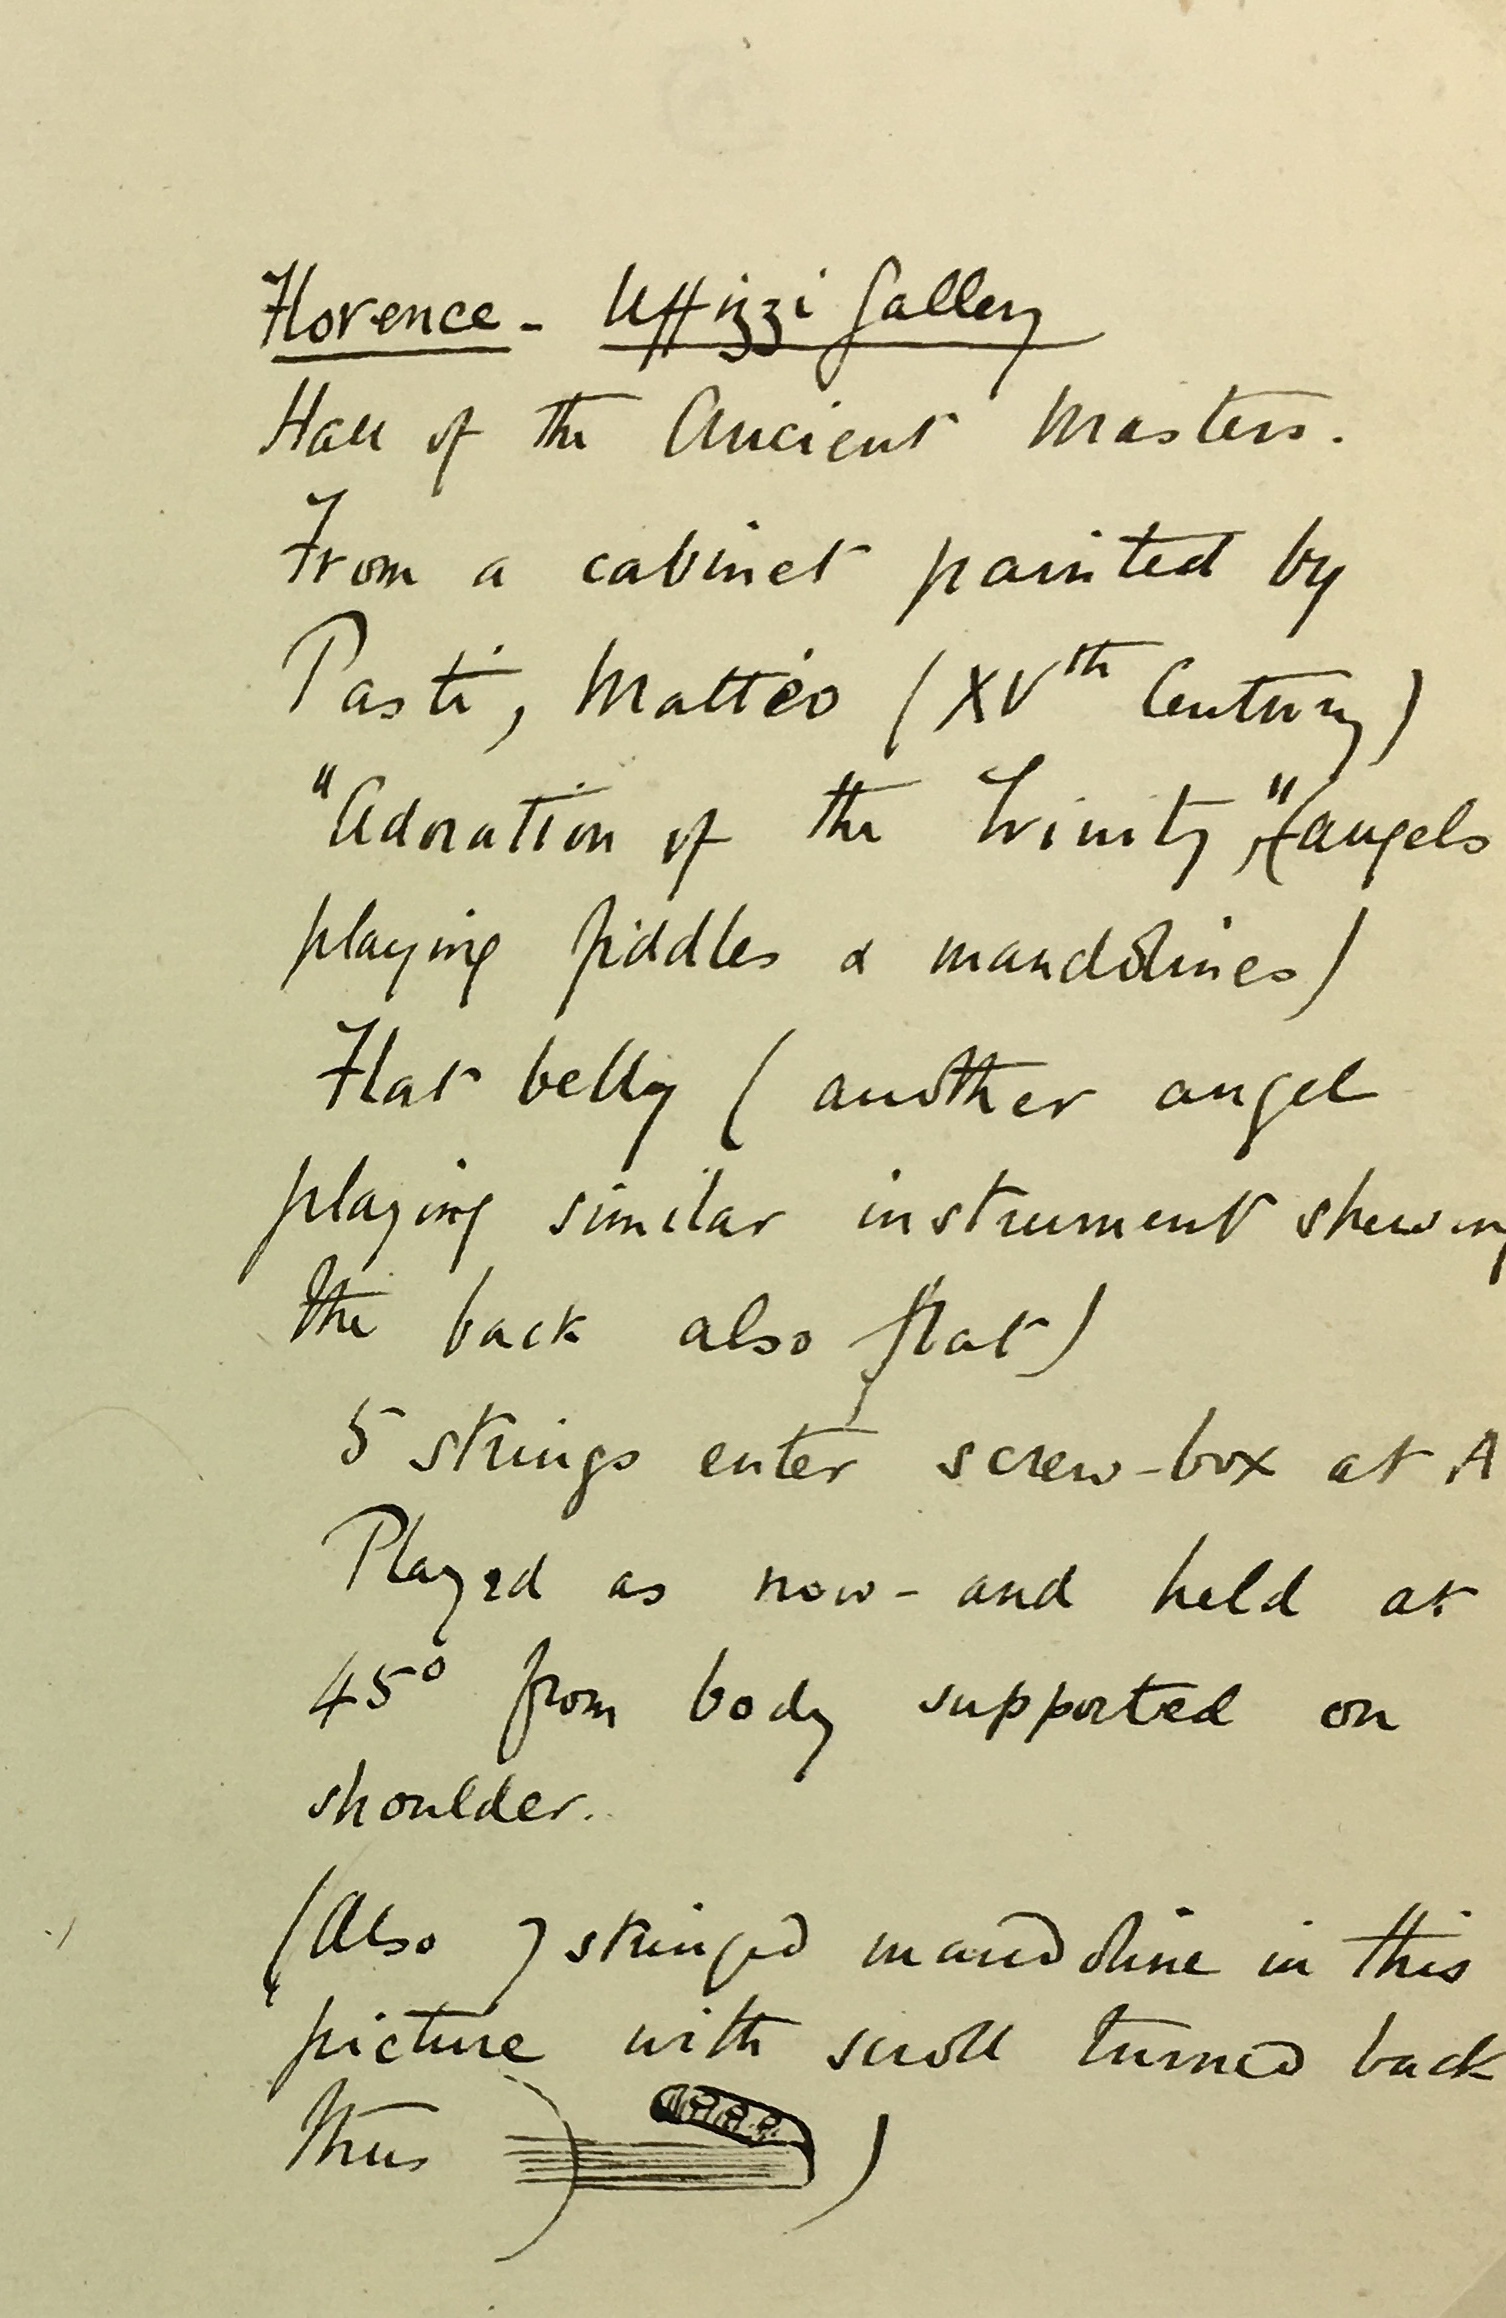 Florence - Uffizzi Gallery
Hall of the Ancient Masters.
From a cabinet painted by
Pasti, Matteo (XVth Century)
"Adoration of the Trinity", (angels
playing fiddles & mandolines)
Flat belly (another angel
playing similar instrument shewing
the back also flat)
5 strings enter screw-box at A
Played as now - and held at
45° from body supported on
shoulder.
(Also 7 stringed mandoline in this
picture with scroll turned back
thus )